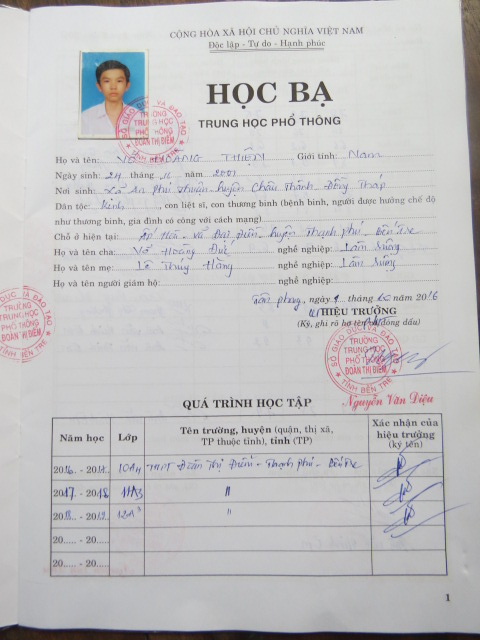 CỘNG HÒA XÃ HỘI CHỦ NGHĨA VIỆT NAM
Độc lập - Tự do - Hạnh phúc
HỌC BẠ
TRUNG HỌC PHỔ THÔNG
SỞ GIÁO DỤC VÀ ĐÀO TẠO
TRƯỜNG
TRUNG HỌC
PHỔ THÔNG
ĐOÀN THỊ ĐIỂM
Họ và tên: VÕ HOÀNG THIÊN Giới tính: Nam
Ngày sinh: 24 tháng 11 năm 2001
Nơi sinh: Xã An Phú Thuận, huyện Châu Thành Đồng Tháp
Dân tộc: Kinh, con liệt sĩ, con thương binh (bệnh binh, người được hưởng chế độ
như thương binh, gia đình có công với cách mạng)
Chỗ ở hiện tại: xã Đại Điền, huyện Thạnh Phú - Bến Tre
Họ và tên cha: Võ Hoàng nghề nghiệp: Làm ruộng
Họ và tên mẹ: Lê Thúy Hằng nghề nghiệp: Làm ruộng
Họ và tên người giám hộ: nghề nghiệp:
ngày 1 tháng 10 năm 2016
HIỆU TRƯỞNG
(Ký, ghi rõ họ tên, đóng dấu)
SỞ GIÁO DỤC VÀ ĐÀO TẠO
TRƯỜNG
TRUNG HỌC
PHỔ THÔNG
ĐOÀN THỊ ĐIỂM
TỈNH BẾN TRE
DỤC VÀ ĐÀO TẠO
TRƯỜNG
TRUNG HỌC
PHỔ THÔNG
ĐOÀN THỊ ĐIỂM
TỈNH BẾN TRE
Nguyễn Văn Diệu
QUÁ TRÌNH HỌC TẬP
Năm học Lớp Tên trường, huyện (quận, thị xã, TP thuộc tỉnh), tỉnh (TP) Xác nhận của hiệu trưởng (ký tên)
2016 - 2017 THPT Đoàn Thị Điểm - Thạnh Phú - Bến Tre
2017 - 2018 11A3 "
2018 - 2019 12A3 "
20..... - 20.....
20..... - 20.....
1